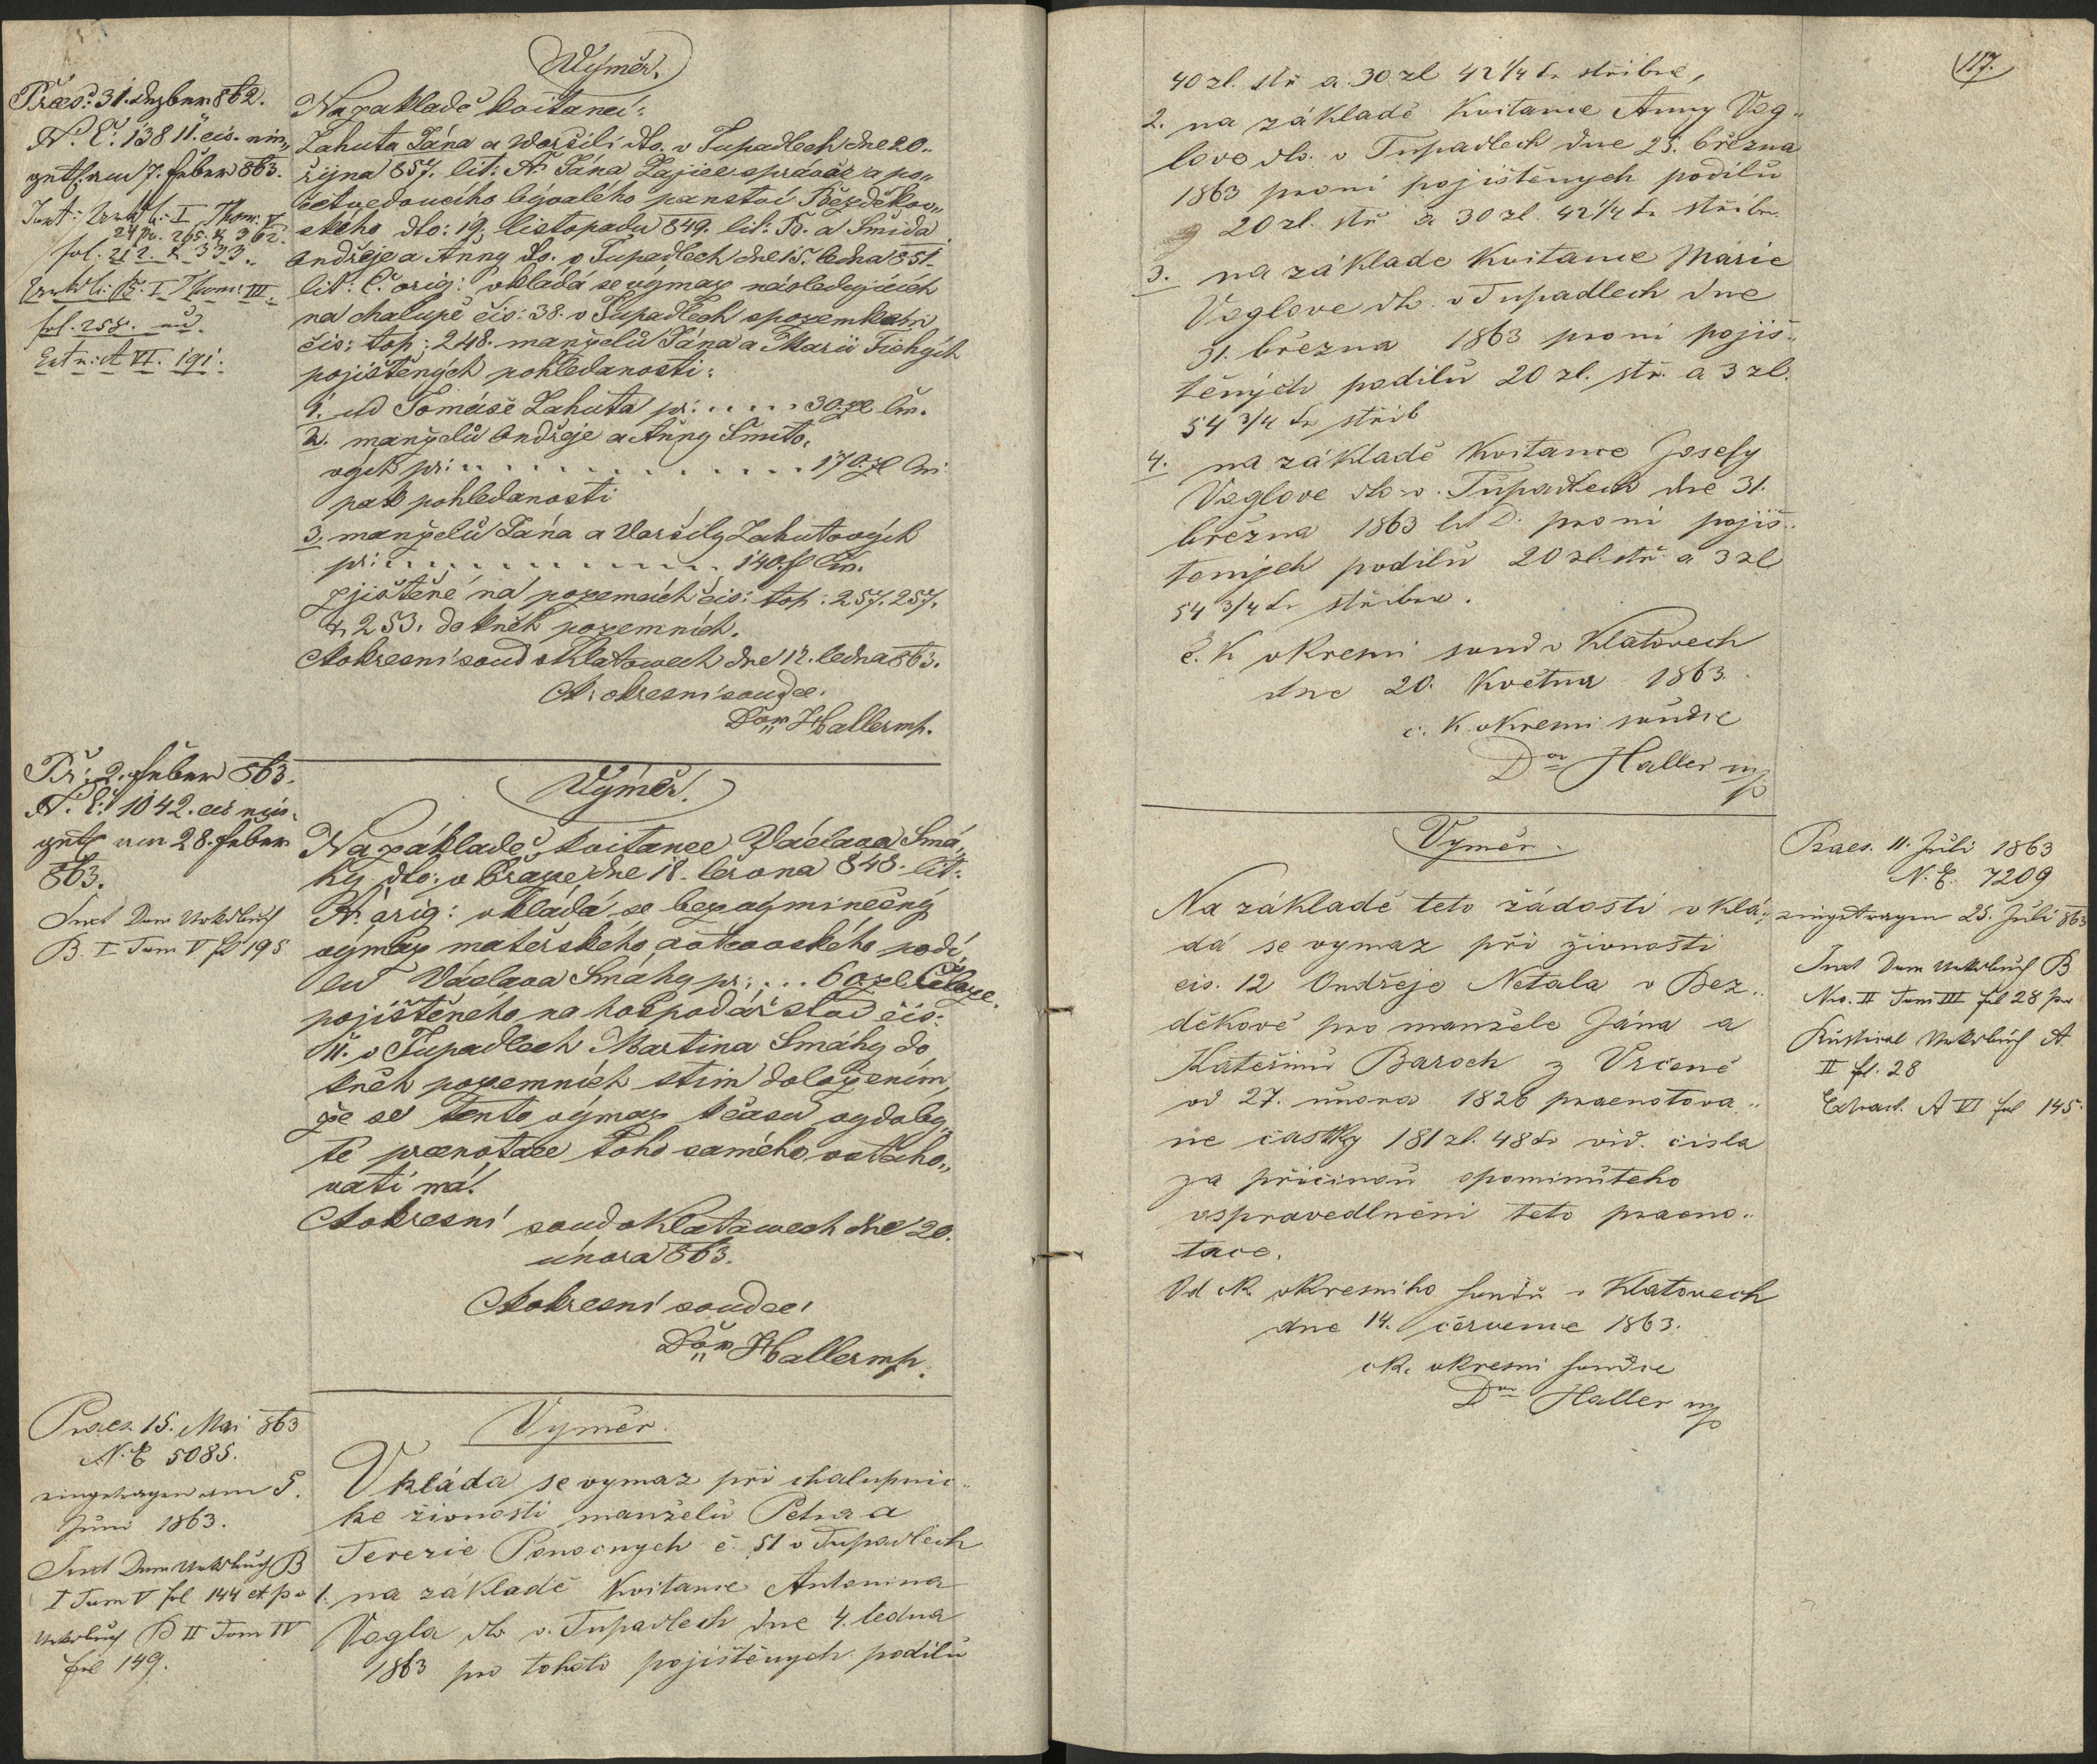 Výměr.
Praes: 31. dezbem 862.
N. E. 13811. eis. nin„
getr. am 7. feber 863.
Inst: Urk b. I Thom: V
24 pr. 295. & 362.
fol. 212. & 333.
Urkdb: B. I Thom: III.
fol. 258. und.
Extr: A VI. 191.
Na základě kvitancí:
Zahuta Jána a Woršili dto. v Tupadlech dne 20.
října 857. lit: A. Jána Zajíce správce a po„
četvedoucího bývalého panství Bezděkov„
ského dto: 19. listopadu 849. lit: B. a Šmida
Ondřeje a Anny dto. v Tupadlech dne 15. ledna 851.
lit: C. orig: vkládá se výmaz následujících
na chalupě čís: 38. v Tupadlech s pozemkem
čís: top: 248. manželů Jána a Marii Tichých
pojištěných pohledanosti:
1. od Tomáše Zahuta pr: . . . . . 30 zl Cm.
2. manželů Ondřeje a Anny Šmito„
vých pr: . . . . . . . . . . . . 170. zl Cm
pak pohledanosti
3. manželů Jána a Voršily Zahutových
pr: . . . . . . . . . . . . . 140. f Cm.
zjištěné na pozemcích čís: top: 257. 257.
& 253. do kněh pozemních.
Ck okresní soud v Klatowech dne 12. ledna 863.
Ck okresní soudce.
Dor. Haller mp.
Pr: 2. feber 863.
N. E. 1042. eis nin-
getr am 28. feber
863.
Inst Dom Urkdbuch
B. I Tom V fl 195
Výměr.
Na základě kvitance Václava Smá„
hy dto: v Praze dne 18. června 848. lit:
A. orig: vkládá se bezvýminečný
výmaz mateřského a otcovského podí„
lu Václava Smáhy pr: . . . 60 zl
pojištěného na hospodářství čís:
11. v Tupadlech Martina Smáhy do
kněh pozemních stím doložením,
že se tento výmaz k času vydoby„
té praenotace toho samého vztaho„
vati má.
Ck okresní soud v Klatowech dne 20.
února 863.
Ck okresní soudce:
Dor. Haller mp.
Praes. 15. Mai 863
N. E 5085.
eingetragen am 5.
Juni 1863.
Inst Dom Urkdbuch B
I Tom V fol 144 et pr
Urkdbuch B II Tom IV
fol 149.
Vyměr.
Vkláda se vymaz při chalupnic„
ke živnosti manželů Petra a
Terezie Ponocnych č. 51 v Tupadlech
1. na základě Kvitance Antonina
Vogla dto v. Tupadlech dne 4. ledna
1863 pro tohoto pojištěnych podilu
117.
40 zl. stř a 30 zl 42 1/4 kr stříbra,
2. na základě Kvitance Anny Vog„
love dto. v Tupadlech dne 25. března
1863 proni pojištěnych podilu
20 zl. stř a 30 zl. 42 1/4 kr stříbr.
3. na základe Kvitance Marie
Voglove dto. v Tupadlech dne
31. března 1863 proni pojiš„
těnych podilů 20 zl. stř. a 3 zl.
54 3/4 kr stříb
4. na základě Kvitance Josefy
Voglove dto v. Tupadlech dne 31.
března 1863 lit D. proni pojiš„
tenych podilů 20 zl. stř. a 3 zl
54 3/4 kr stříbra.
C. K okresni soud v Klatovech
dne 20. Května 1863.
c. K. okresni soudce
Dor Haller mp
Vyměr.
Praes. 11. Juli 1863
N. E. 7209
eingetragen 25. Juli 863
Inst Dom Urkdbuch B
Nro. II Tom III fol 28 pr
Rustical Urkdbuch A
II fl. 28
Extract. A VI fol 145.
Na základě teto žádosti vklá„
dá se vymaz při živnosti
čis. 12 Ondřeje Netala v Bez„
děkově pro manžele Jána a
Kateřinu Baroch z Vrčeně
od 27. února 1826 praenotova„
ne častky 181 zl. 48 kr vid. čisla
za příčinou opominuteho
ospravedlněni teto praeno„
tace.
Od ck okresniho soudu v Klatovech
dne 14. července 1863.
ck. okresni soudce
Dor Haller mp